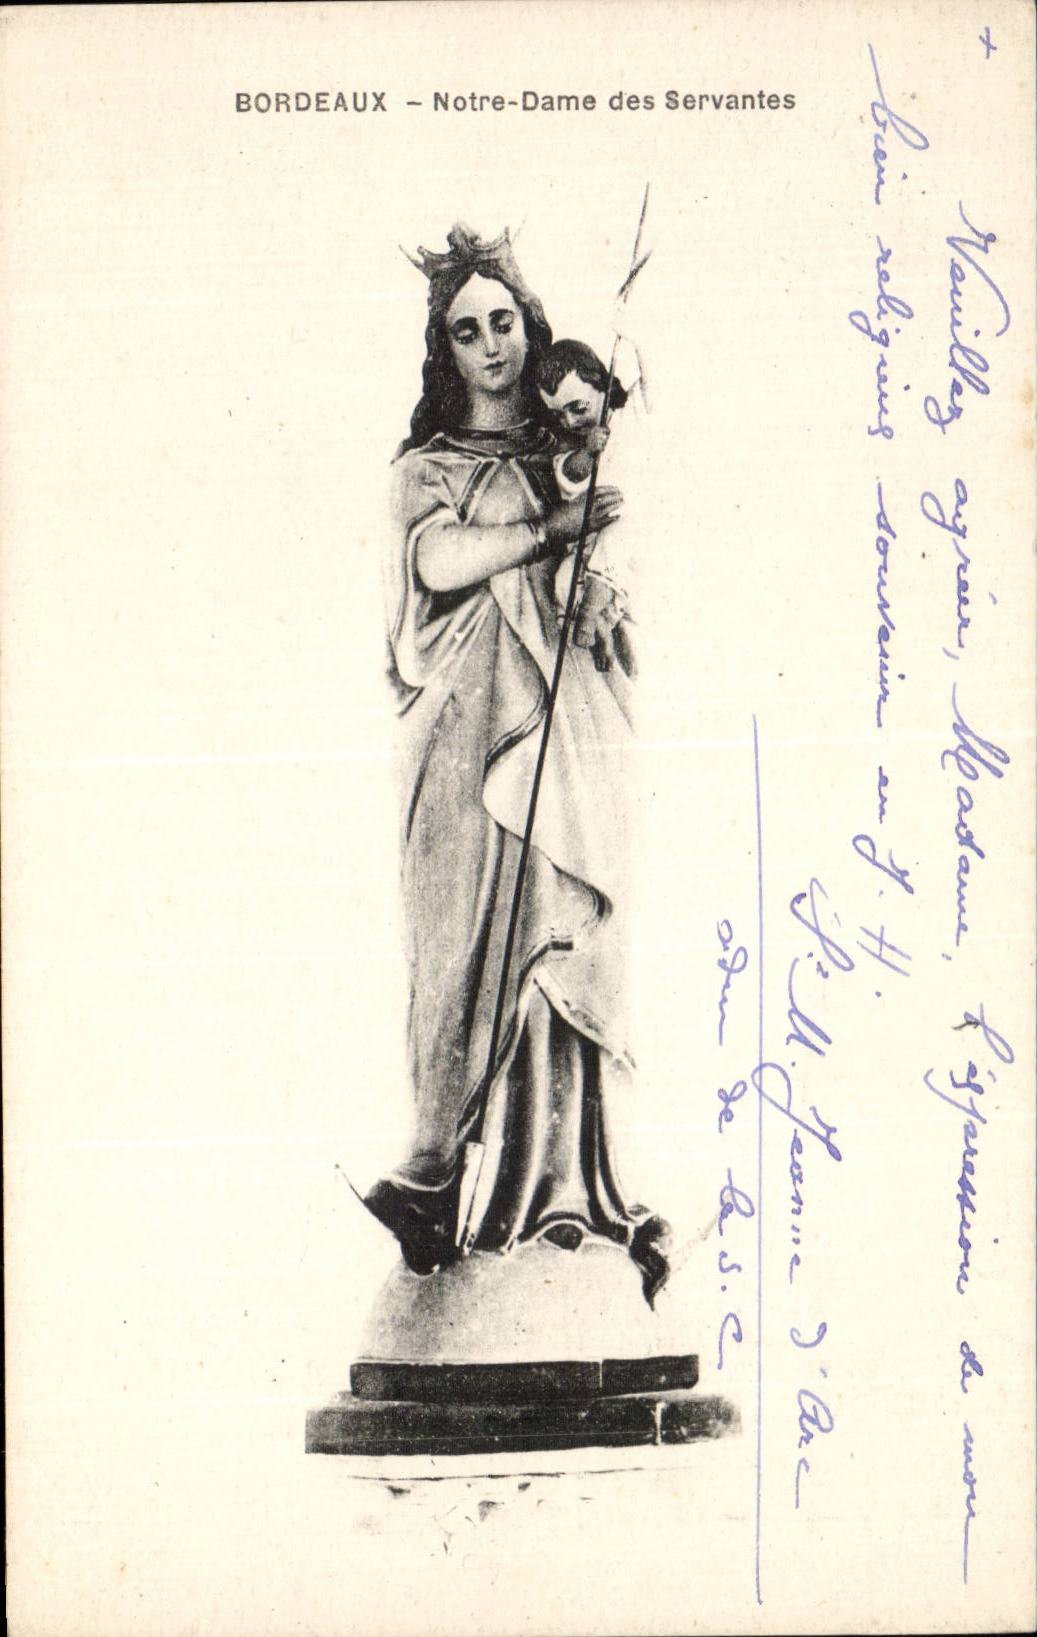 BORDEAUX - Notre-Dame des Servantes
+
Veuillez agréer, Madame, l'éxpression de mon
bien religieux souvenir en J. H.
Sr M. Jeanne d'Arc
de la S. C